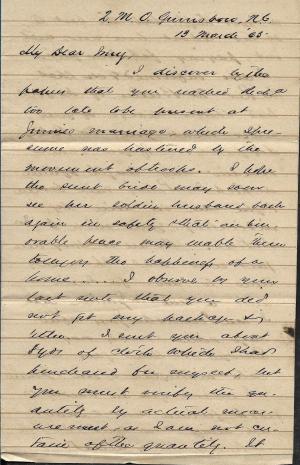 Q. M. O. Greensboro, N.C.
13 March '65
My Dear
I discover by the
papers that you reached
too late to be present at
marriage, which I pre-
sume was hastened by the
movement of troops. I hope
the sweet bride may soon
see her soldier husband back
again in safety & that an hon-
orable peace may enable them
to enjoy the happiness of a
home..... I observe by your
last note, that you did
not get my package &
letter. I sent you about
8 yds of cloth which I had
purchased for myself, but
you must verify the qu-
antity by actual meas-
urement, as I am not cer-
tain of the quantity. It